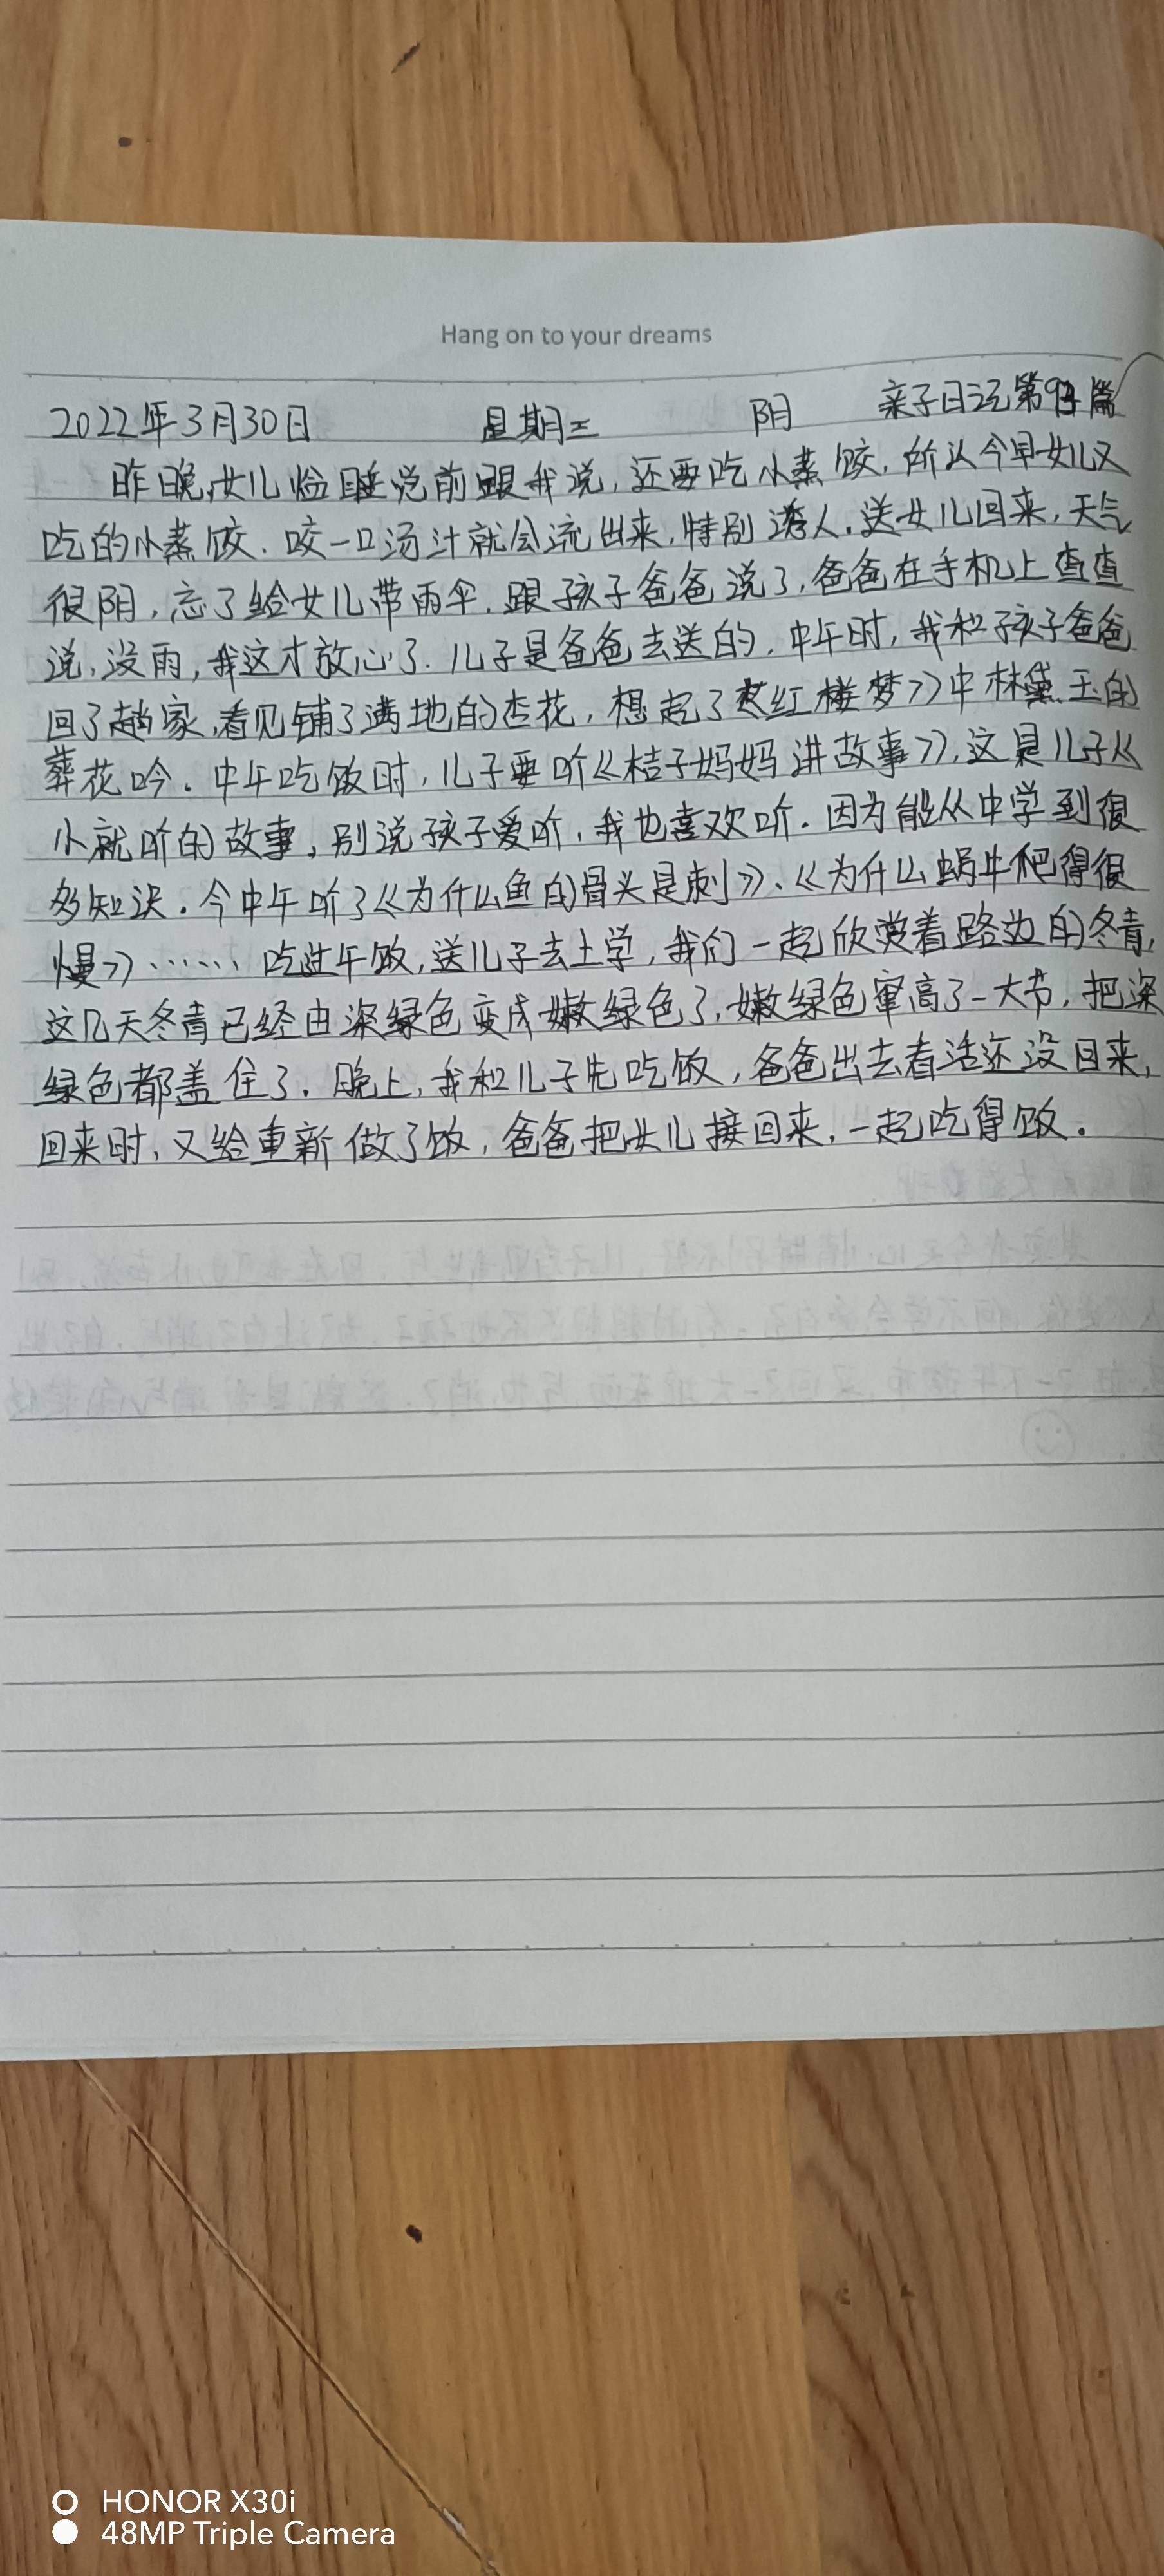 Hang on to your dreams
2022年3月30日 星期三 阴 亲子日记第篇
昨晚,女儿临睡觉前跟我说,还要吃小蒸饺,所以今早女儿又
吃的小蒸饺.咬一口汤汁就会流出来,特别诱人.送女儿回来,天气
很阴,忘了给女儿带雨伞.跟孩子爸爸说了,爸爸在手机上查查
说,没雨,我这才放心了.儿子是爸爸去送的.中午时,我和孩子爸爸
回了趟家,看见铺了满地的杏花,想起了红楼梦》中林黛玉的
葬花吟.中午吃饭时,儿子要听《桔子妈妈讲故事》,这是儿子从
小就听的故事,别说孩子爱听,我也喜欢听.因为能从中学到很
多知识.今中午听了《为什么鱼的骨头是刺》、《为什么蜗牛爬得很
慢》……吃过午饭,送儿子去上学,我们一起欣赏着路边的冬青,
这几天冬青已经由深绿色变成嫩绿色了,嫩绿色窜高了一大节,把深
绿色都盖住了.晚上,我和儿子先吃饭,爸爸出去看活还没回来,
回来时,又给重新做了饭,爸爸把女儿接回来,一起吃得饭.
HONOR X30i
48MP Triple Camera